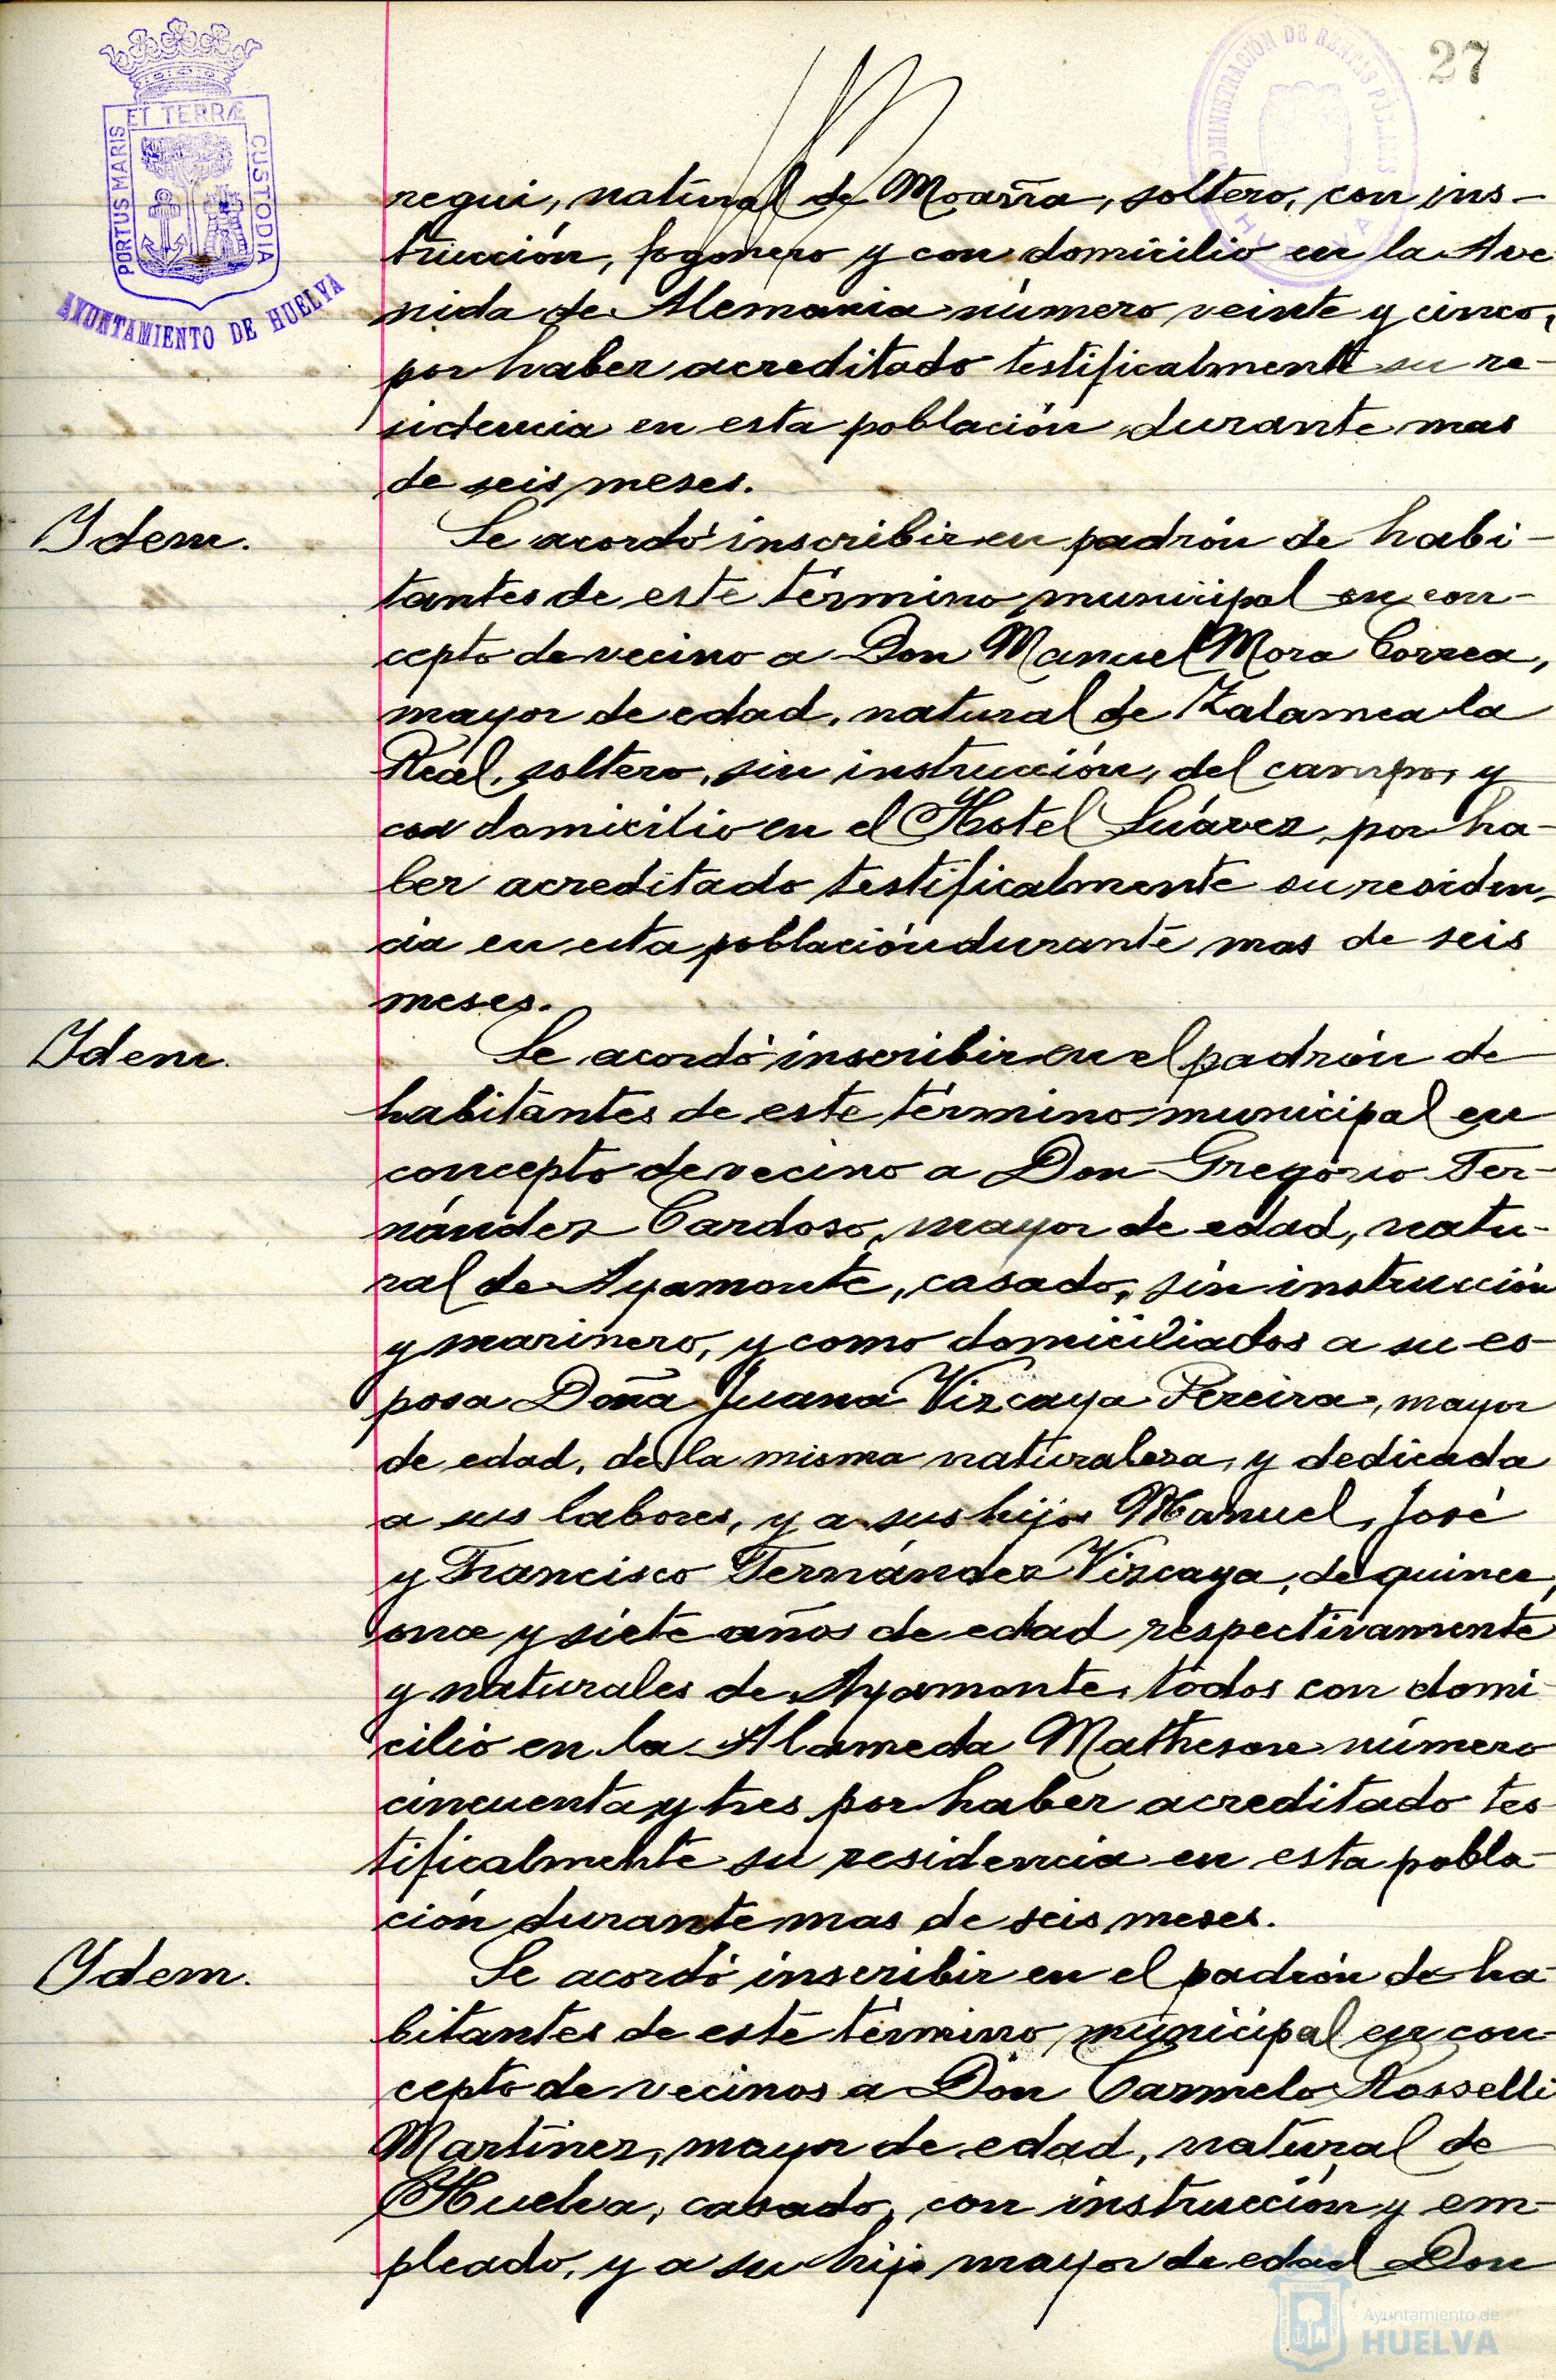 27
ET TERRÆ
PORTUS MARIS
CUSTODIA
AYUNTAMIENTO DE HUELVA
ADMINISTRACIÓN DE RENTAS PÚBLICAS
HUELVA
negui, natural de Moaña, soltero, con ins-
trucción, fogonero y con domicilio en la Ave
nida de Alemania número veinte y cinco,
por haber acreditado testificalmente su re-
sidencia en esta población durante mas
de seis meses.
Idem.
Se acordó inscribir en padrón de habi-
tantes de este término municipal en con-
cepto de vecino a Don Manuel Mora Correa,
mayor de edad, natural de Zalamea la
Real, soltero, sin instrucción, del campo, y
con domicilio en el Hotel Suárez, por ha-
ber acreditado testificalmente su residen-
cia en esta población durante mas de seis
meses.
Idem.
Se acordó inscribir en el padrón de
habitantes de este término municipal en
concepto de vecino a Don Gregorio Fer-
nández Cardoso, mayor de edad, natu-
ral de Ayamonte, casado, sin instrucción
y marinero, y como domiciliados a su es-
posa Doña Juana Vizcaya Pereira, mayor
de edad, de la misma naturaleza, y dedicada
a sus labores, y a sus hijos Manuel, José
y Francisco Fernández Vizcaya, de quince,
once y siete años de edad respectivamente
y naturales de Ayamonte, todos con domi
cilio en la Alameda Matheson número
cincuenta y tres por haber acreditado tes
tificalmente su residencia en esta pobla-
ción durante mas de seis meses.
Idem.
Se acordó inscribir en el padrón de ha-
bitantes de este término municipal en con-
cepto de vecinos a Don Carmelo Rosselli
Martínez, mayor de edad, natural de
Huelva, casado, con instrucción y em-
pleado, y a su hijo mayor de edad Don
Ayuntamiento de
HUELVA